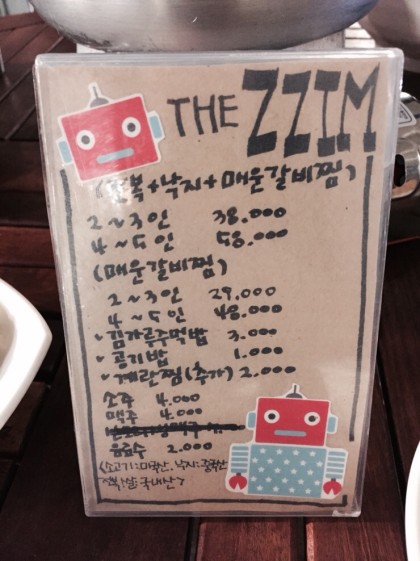 THE ZZIM
(전복+낙지+매운갈비찜)
2~3인 38.000
4~5인 58.000
(매운갈비찜)
2~3인 29.000
4~5인 48.000
김가루주먹밥 3.000
공기밥 1.000
계란찜(추가) 2.000
소주 4.000
맥주 4.000
음료수 2.000
(소고기:미국산, 낙지:중국산
쌀:국내산)